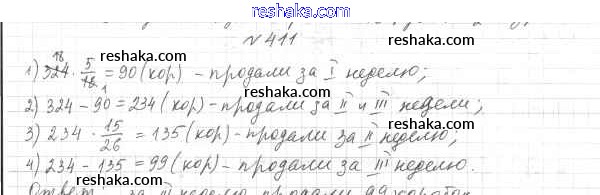 reshaka.ru
№ 411
reshaka.ru reshaka.ru
1) 324 · 5/18 = 90 (кор) - продали за I неделю;
2) 324 - 90 = 234 (кор) - продали за II и III недели;
reshaka.ru reshaka.ru
3) 234 · 15/26 = 135 (кор) - продали за II неделю;
4) 234 - 135 = 99 (кор) - продали за III неделю.
reshaka.ru reshaka.ru
Ответ: за III неделю продали 99 коробок